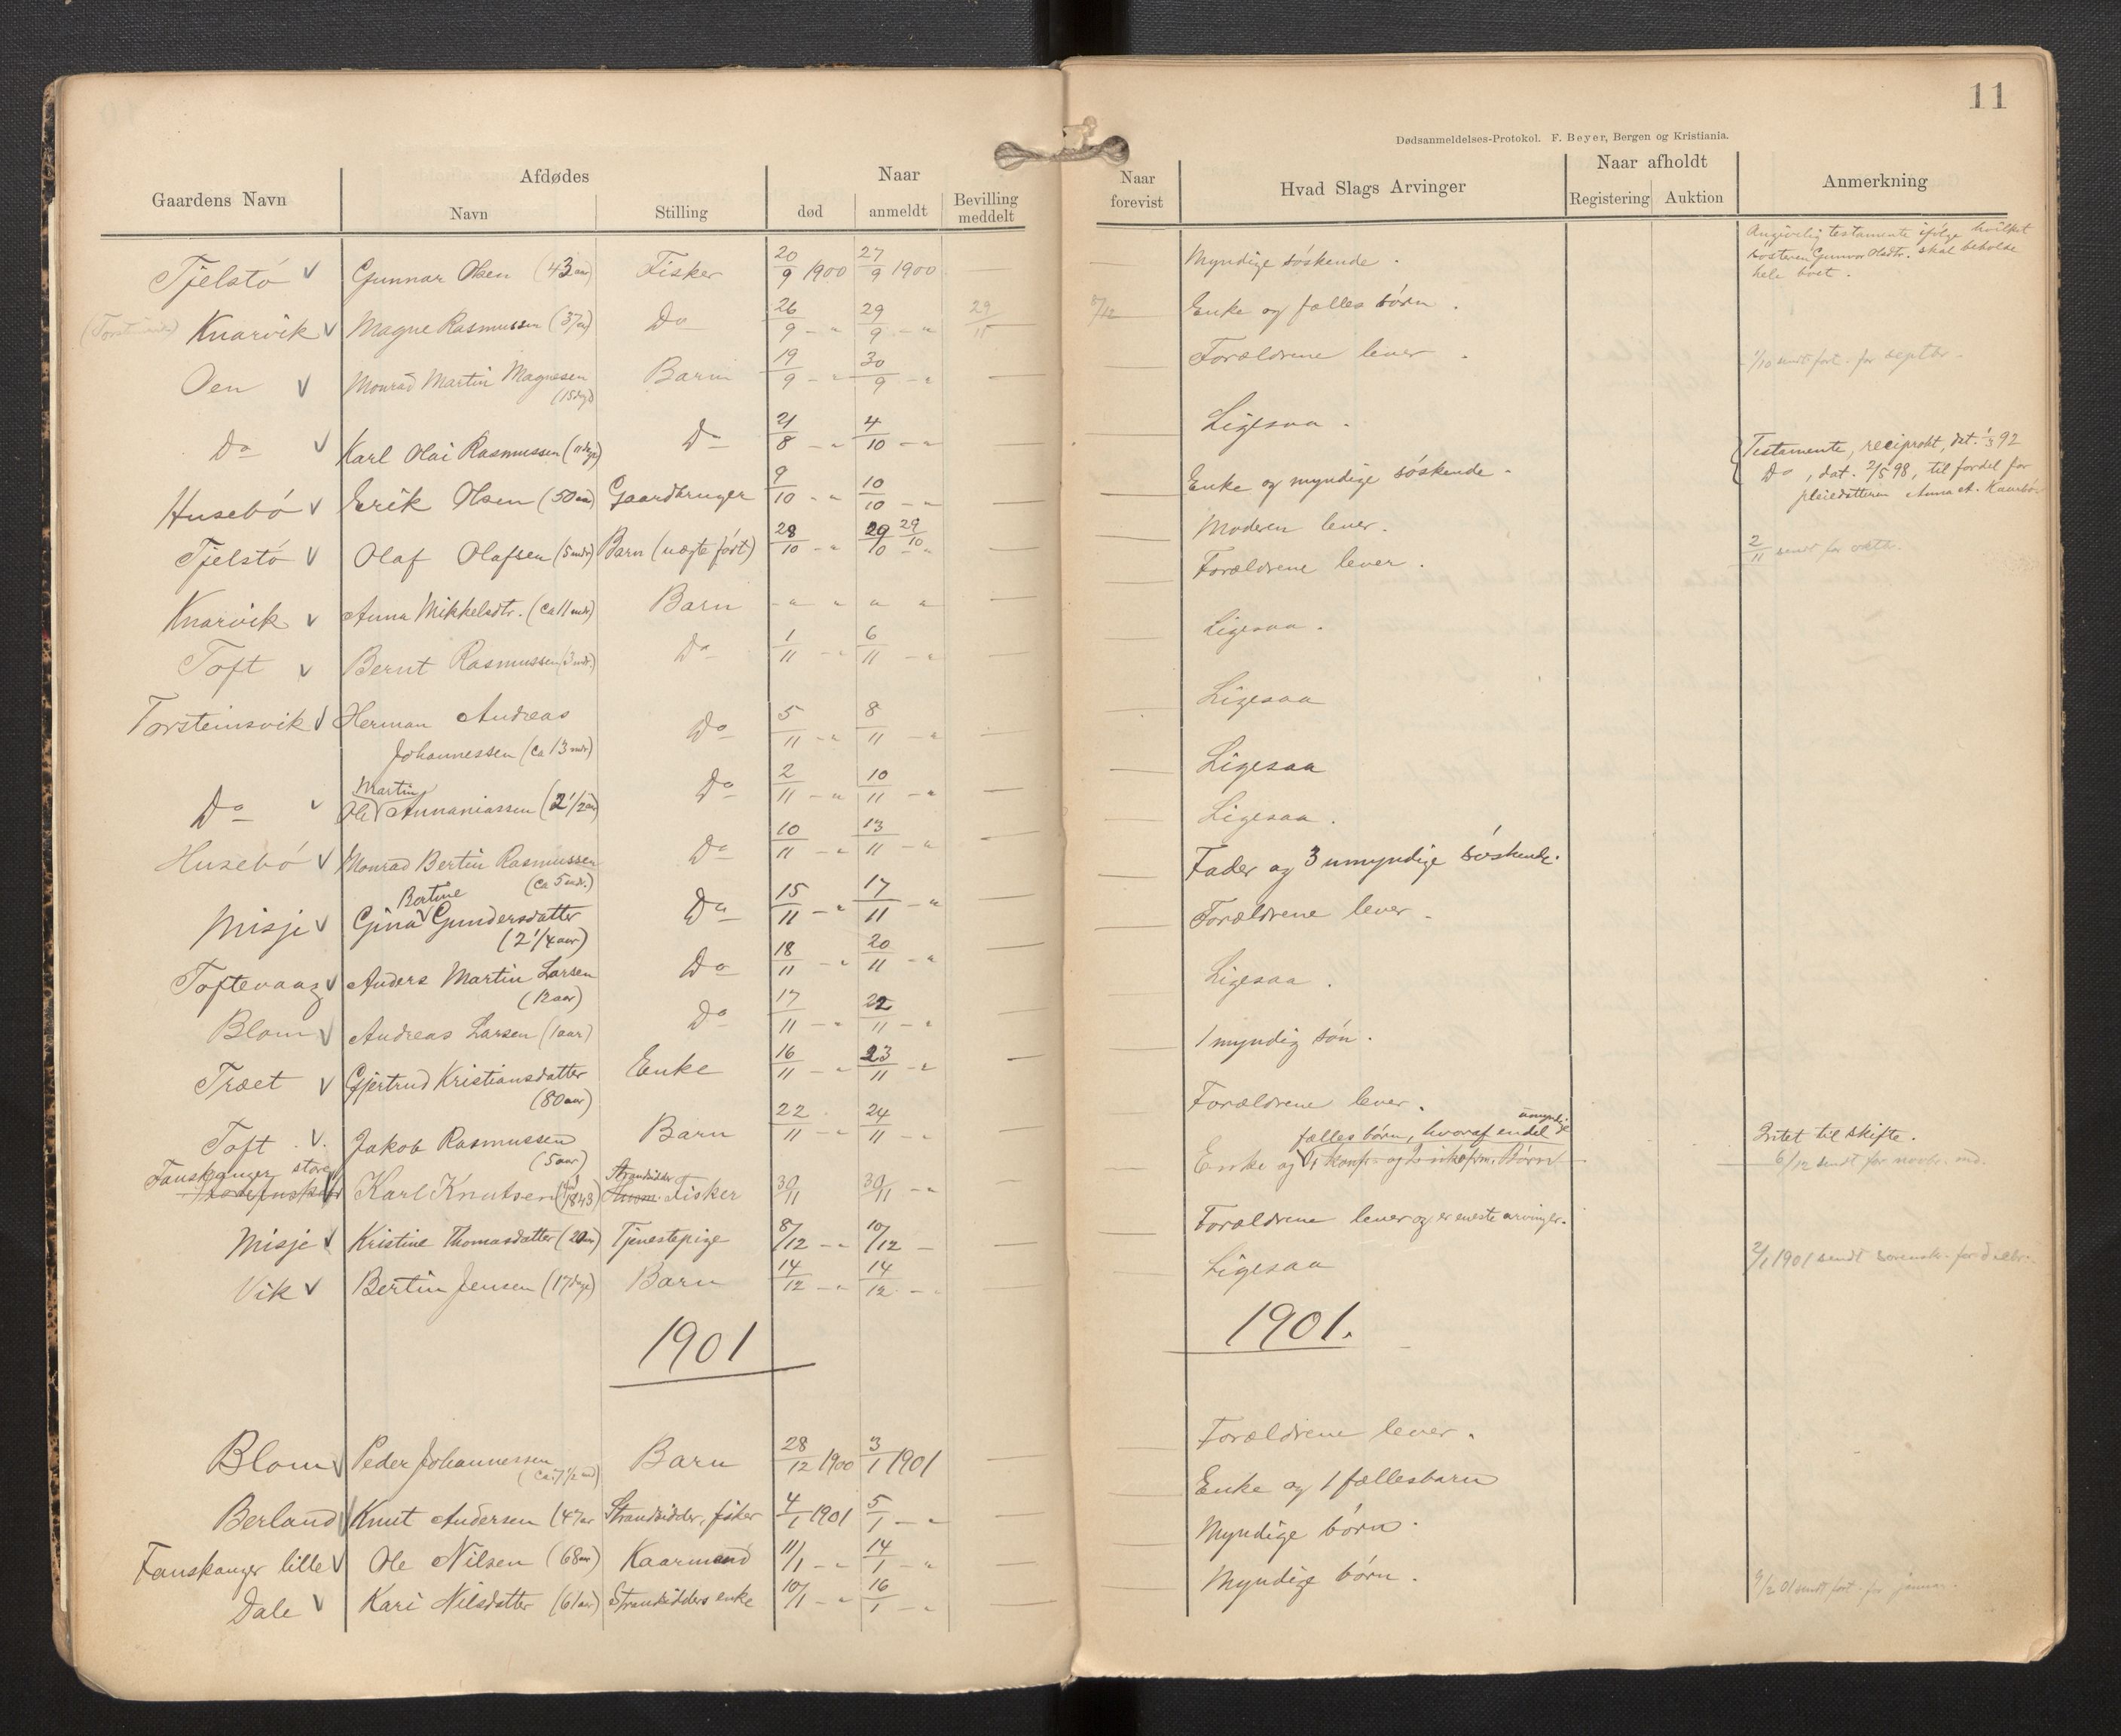 11
Dødsanmeldelses-Protokol. F. Beyer, Bergen og Kristiania.
Gaardens Navn
Afdødes
Navn
Stilling
Naar
død
anmeldt
Bevilling meddelt
Naar forevist
Hvad Slags Arvinger
Naar afholdt
Registering
Auktion
Anmerkning
Tjelstö Gunnar Olsen (43 aar) Fisker 20/9 1900 27/9 1900 Myndige söskende. Angivelig testamente ifölge hvilket
sösteren Gunvor Olsdtr. skal beholde
hele boet.
Knarvik Magne Rasmussen (37 a) Do 26/9 - " 29/9 - " 29/11 8/12 Enke og fælles börn.
Oen Monrad Martin Magnesen Barn 19/9 - " 30/9 - " Forældrene lever. 1/10 sendt fort. for septbr.
(15 dage)
Do Karl Olai Rasmussen (11 dage) Do 21/8 - " 4/10 - " Ligesaa.
Husebö Erik Olsen (50 aar) Gaardbruger 9/10 - " 10/10 - " Enke og myndige söskende. Testamente, reciprokt, dat. 92
Do, dat. 2/5 98, til fordel for
pleiedatteren Anna A.
Tjelstö Olaf Olafsen (5 mdr) Barn (uægte født) 28/10 - " 29/10 29/10 - " Moderen lever. 2/11 sendt for oktbr.
Knarvik Anna Mikkelsdtr. (ca 11 mdr) Barn - " " " " Forældrene lever.
Toft Bernt Rasmussen (3 mdr.) Do 1/11 - " 6/11 - " Ligesaa.
Torsteinsvik Herman Andreas
Johannessen (ca 13 mdr) Do 5/11 - " 8/11 - " Ligesaa
Martin
Do Ole Annaniassen (2 1/2 aar) Do 2/11 - " 10/11 - " Ligesaa
Husebö Monrad Bertin Rasmussen Do 10/11 - " 13/11 - " Ligesaa.
(ca 5 mdr.)
Bertine
Misje Gina Gundersdatter Do 15/11 - " 17/11 - " Fader og 3 umyndige söskende.
(2 1/4 aar)
Toftevaag Anders Martin Larsen Do 18/11 - " 20/11 - " Forældrene lever.
(12 aar)
Blom Andreas Larsen (1 aar) Do 17/11 - " 22/11 - " Ligesaa.
Træet Gjertrud Kristiansdatter Enke 16/11 - " 23/11 - " 1 myndig sön.
(80 aar)
Toft Jakob Rasmussen Barn 22/11 - " 24/11 - " Forældrene lever.
(5 aar)
umyndige
fælles börn, hvoraf endel
Fanskanger store Strandsidder
Karl Knutsen (född 1843) Fisker 30/11 30/11 - " Enke og 1 konf. og 2 ukofrm. Börn Britet til skifte.
6/12 sendt for novbr. md.
Misje Kristine Thomasdatter (20 aar) Tjenestepige 8/12 - " 10/12 - Forældrene lever og er eneste arvinger.
Vik Bertin Jensen (17 dage) Barn 14/12 - " 14/12 - " Ligesaa 2/1 1901 sendt sorensk. for decbr.
1901 1901.
Blom Peder Johannessen Barn 28/12 1900 3/1 1901 Forældrene lever.
(ca. 7 1/2 md)
Berland Knut Andersen (47 aar Strandsidder, fisker 4/1 1901 5/1 - " Enke og 1 fællesbarn
Fanskanger lille Ole Nilsen (68 aar) Kaarmand 11/1 - " 14/1 - " Myndige börn.
Dale Kari Nilsdatter (61 aar) Strandsidders enke 10/1 - " 16/1 - " Myndige börn. 9/2 01 sendt fort. for januar.